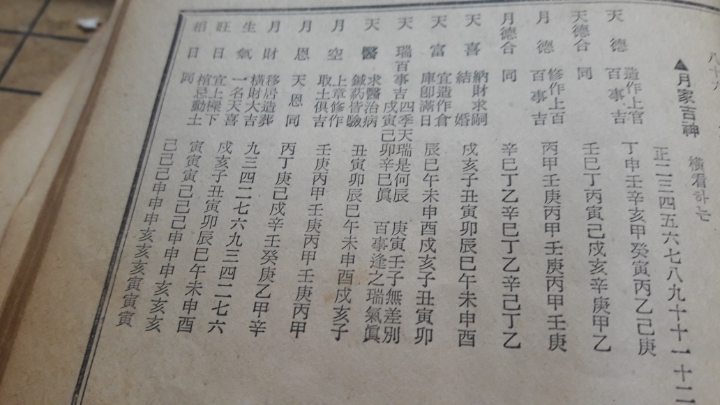 ▲月家吉神 橫看하는
正二三四五六七八九十十一十二
天德 造作上官 丁申壬辛亥甲癸寅丙乙己庚
天德合 同 壬巳丁丙寅己戌亥辛庚甲乙
月德 修作上百 百事吉 丙甲壬庚丙甲壬庚丙甲壬庚
月德合 同 辛巳丁乙辛巳丁乙辛己丁乙
天喜 納財求嗣 結婚 戌亥子丑寅卯辰巳午未申酉
天富 宜造作倉 庫卽滿日 辰巳午未申酉戌亥子丑寅卯
天瑞百事吉 四季天瑞是何辰 庚寅壬子無差別
戌寅己卯辛巳眞 百事逢之瑞氣眞
天醫 求醫治病 鍼葯皆驗 丑寅卯辰巳午未申酉戌亥子
月空 上章修作 取土俱吉 壬庚丙甲壬庚丙甲壬庚丙甲
月恩 天恩同 丙丁庚己戌辛壬癸庚乙甲辛
月財 移居造葬 橫財大吉 九三四二七六九三四二七六
生氣 一名天喜 戌亥子丑寅卯辰巳午未申酉
旺日 宜上樑下 棺忌動土 寅寅寅巳巳巳申申申亥亥亥
相日 同 巳巳巳申申申亥亥亥寅寅寅